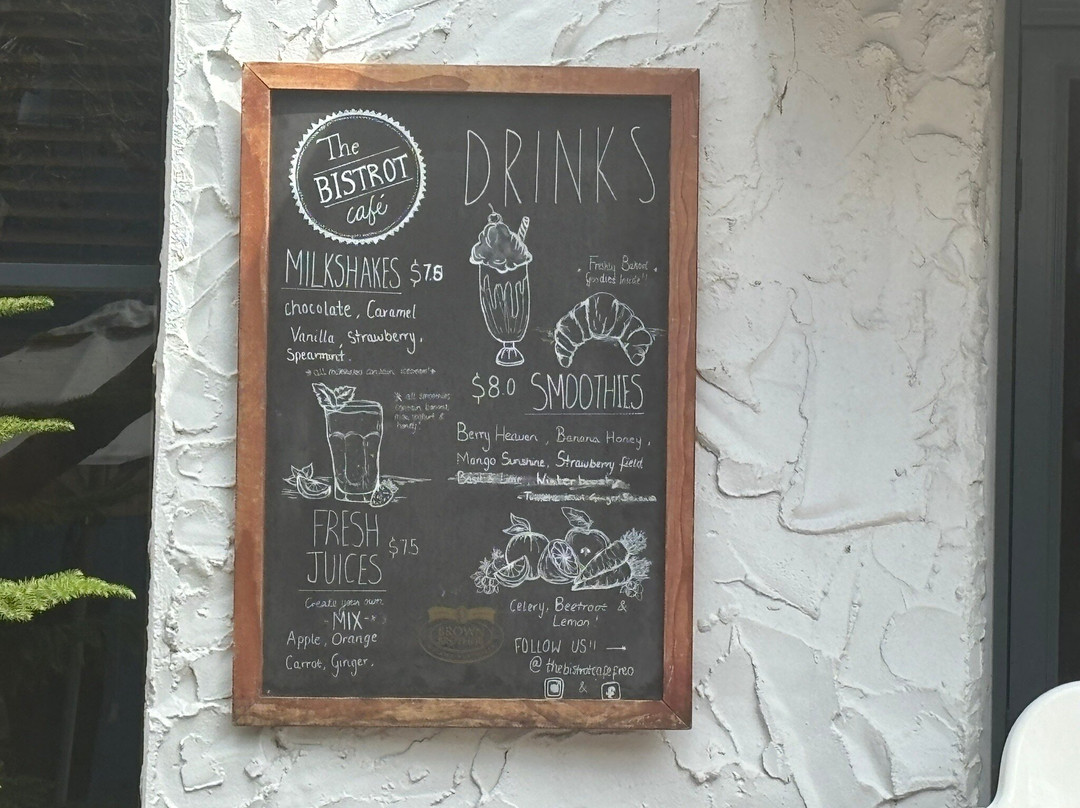 The
BISTROT
café
DRINKS
MILKSHAKES $7.5
chocolate, Caramel
Vanilla, Strawberry,
Spearmint.
*all milkshakes contain icecream!*
Freshly Baked
Goodies Inside!!
$8.0 SMOOTHIES
* all smoothies
contain banana,
milk, yoghurt &
honey!
Berry Heaven, Banana Honey,
Mango Sunshine, Strawberry field
Basil & Lime, Winter
Ginger
FRESH
JUICES $7.5
Create your own
- MIX -
Apple, Orange
Carrot, Ginger.
Celery, Beetroot &
Lemon!
BROWN
BROTHERS
FOLLOW US!! →
@thebistrotcafefreo
&